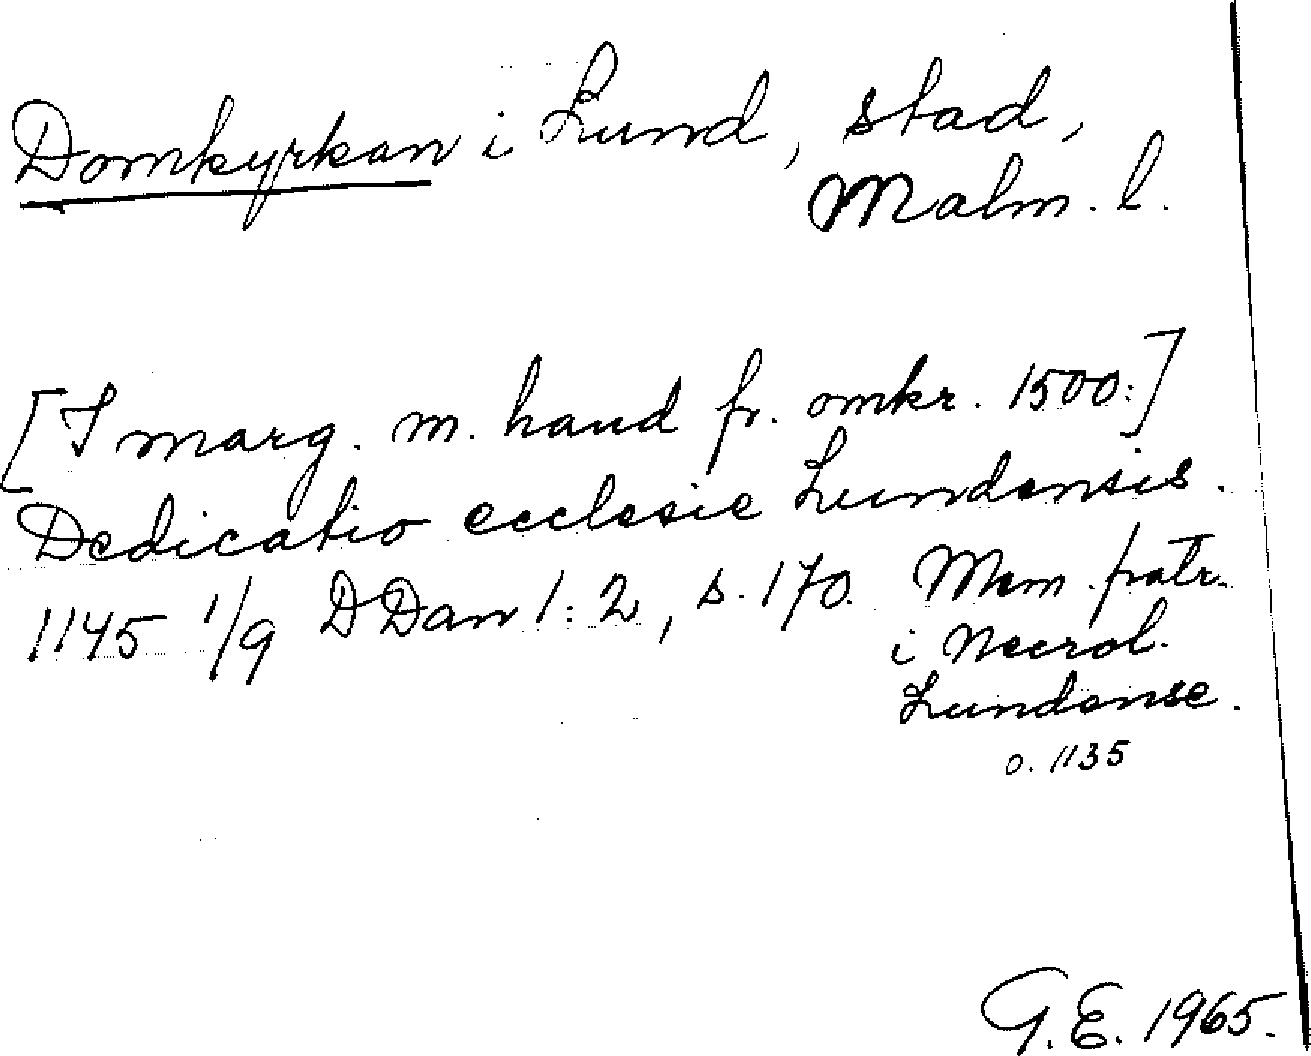 Domkyrkan i Lund, stad,
Malm. l.
[I marg. m. hand fr. omkr. 1500:]
Dedicatio ecclesie Lundensis.
1145 1/9 DDan 1:2, s. 170. Mem. fratr.
i Necrol.
Lundense.
o. 1135
G.E. 1965.